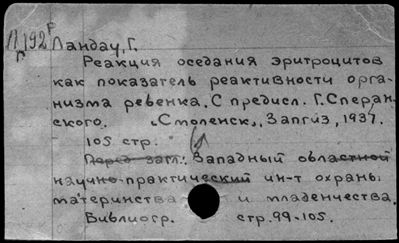 П192
г
Ландау, Г.
Реакция оседания эритроцитов
как показатель реактивности орга-
низма ребенка. С предисл. Г. Сперан-
ского. "Смоленск", Запгиз, 1937.
105 стр.
Перед загл.: Западный областной
научно-практический ин-т охраны
материнства и младенчества.
Библиогр. стр. 99-105.